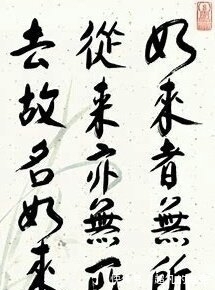 如來者無所
從來亦無所
去故名如來